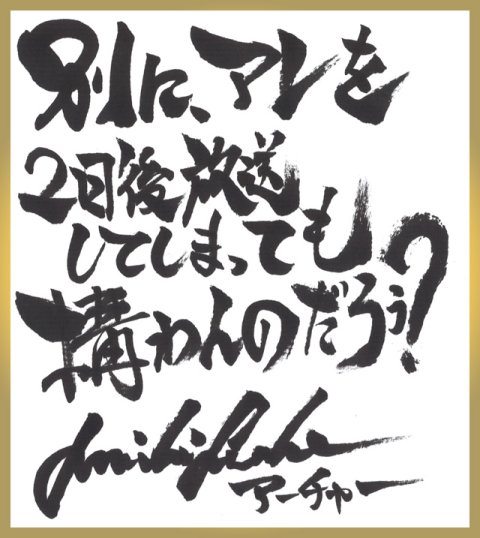 別に、アレを
2日後放送
してしまっても
構わんのだろう?
アーチャー